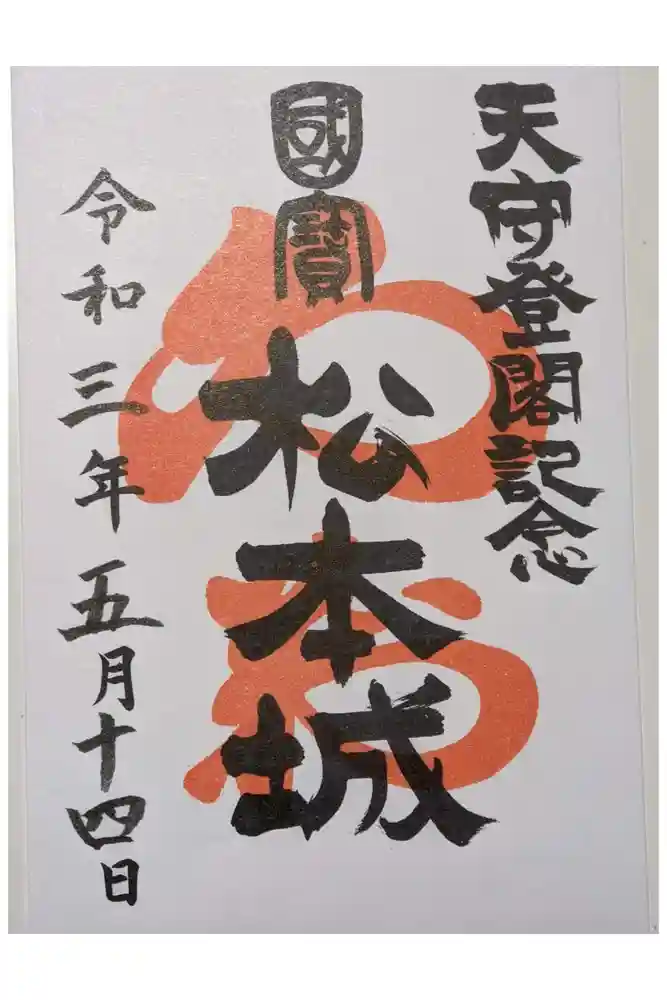 天守登閣記念
國寶
松本城
令和三年五月十四日